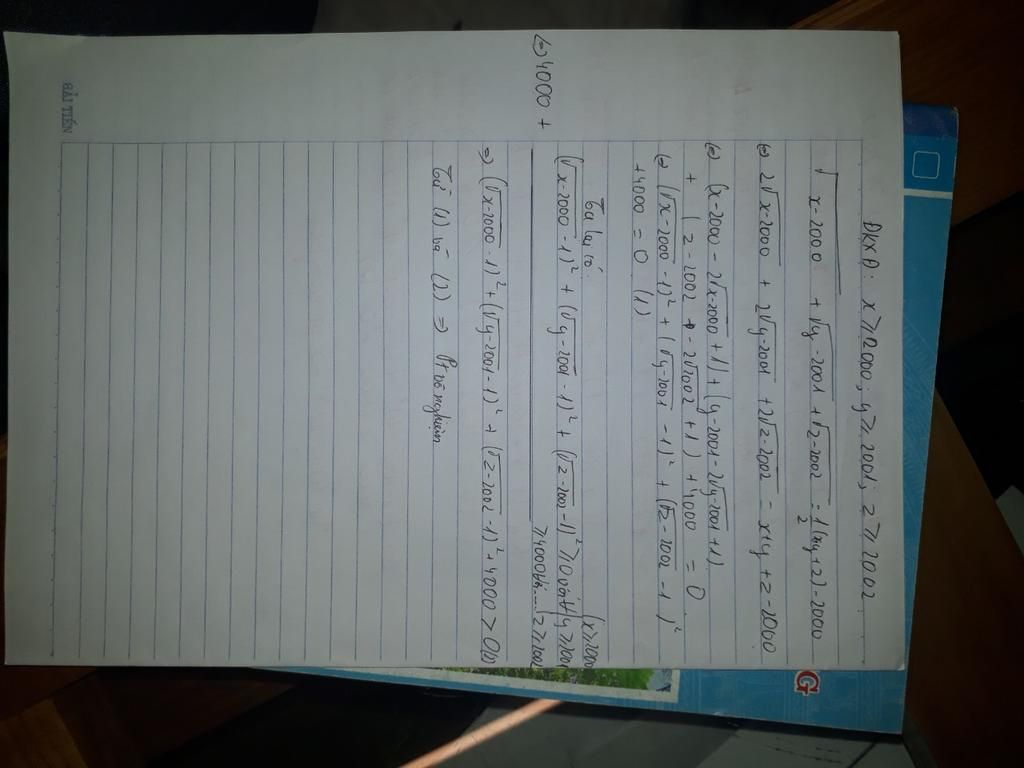 ĐKXĐ: x ≥ 2000; y ≥ 2001; z ≥ 2002
√x-2000 + √y-2001 + √z-2002 = 1/2 (x+y+z) - 2000
(=) 2√x-2000 + 2√y-2001 + 2√z-2002 = x+y+z-2000
(=) (x-2000 - 2√x-2000 + 1) + (y-2001-2√y-2001+1)
+ (z-2002 - 2√2002 + 1) + 4000 = 0
(=) (√x-2000 - 1)² + (√y-2001 - 1)² + (√z-2002 - 1)²
+4000 = 0 (1)
Ta lại có
(√x-2000 - 1)² + (√y-2001 - 1)² + (√z-2002 - 1)² ≥ 0 với ∀ {x ≥ 2000
y ≥ 2001
z ≥ 2002
(=) 4000 + ≥ 4000
=) (√x-2000 - 1)² + (√y-2001 - 1)² + (√z-2002 - 1)² + 4000 > 0 (2)
Từ (1) và (2) => Pt vô nghiệm
HẢI TIẾN
G